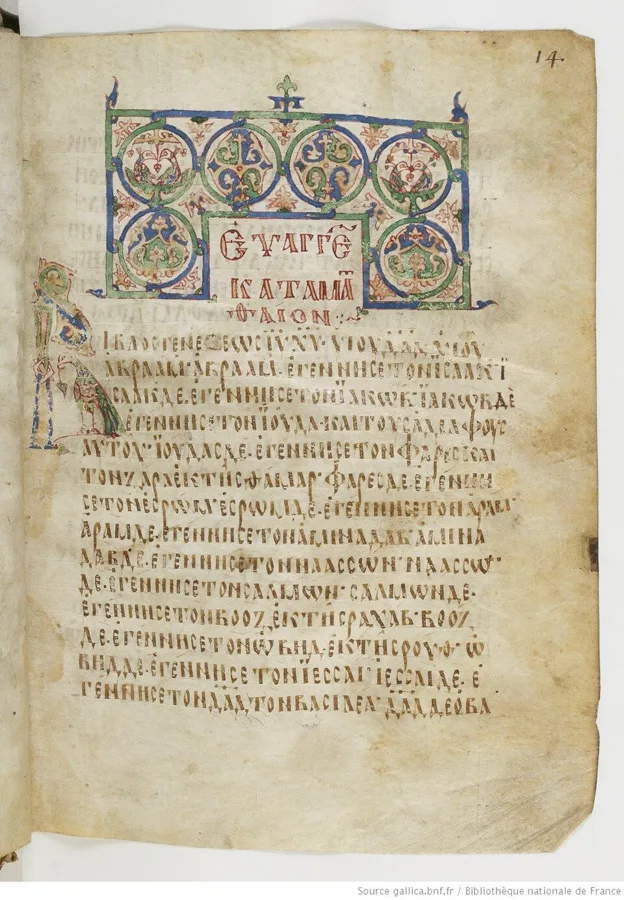 14.
ЄΥΑΓΓΕ
ΚΑΤΑΜΑ
ΘΑΙΟΝ
ΒΙΒΛΟCΓΕΝΕCΕΩCΙΥΧΥΥΙΟΥΔΑΔΥΙΟΥ
ΑΒΡΑΑΜ·ΑΒΡΑΑΜ·ΕΓΕΝΝΗCΕΤΟΝΙCΑΑΚ·Ϊ
CΑΑΚΔΕ·ΕΓΕΝΝΗCΕΤΟΝΪΑΚΩΒ·ΪΑΚΩΒΔΕ
ΕΓΕΝΝΗCΕΤΟΝΪΟΥΔΑ·ΚΑΙΤΟΥCΑΔΕΛΦΟΥC
ΑΥΤΟΥ·ΪΟΥΔΑCΔΕ·ΕΓΕΝΝΗCΕΤΟΝΦΑΡΕCΚΑΙ
ΤΟΝΖΑΡΑΕΚΤΗCΘΑΜΑΡ·ΦΑΡΕCΔΕ·ΕΓΕΝΝΗ
CΕΤΟΝΕCΡΩΜ·ΕCΡΩΜΔΕ·ΕΓΕΝΝΗCΕΤΟΝΑΡΑΜ·
ΑΡΑΜΔΕ·ΕΓΕΝΝΗCΕΤΟΝΑΜΙΝΑΔΑΒ·ΑΜΙΝΑ
ΔΑΒΔΕ·ΕΓΕΝΝΗCΕΤΟΝΝΑΑCCΩΝ·ΝΑΑCCΩ
ΔΕ·ΕΓΕΝΝΗCΕΤΟΝCΑΛΜΩΝ·CΑΛΜΩΝΔΕ·
ΕΓΕΝΝΗCΕΤΟΝΒΟΟΖΕΚΤΗCΡΑΧΑΒ·ΒΟΟΖ
ΔΕ·ΕΓΕΝΝΗCΕΤΟΝΩΒΗΔ·ΕΚΤΗCΡΟΥΘ·Ω
ΒΗΔΔΕ·ΕΓΕΝΝΗCΕΤΟΝΪΕCCΑΙ·ΪΕCCΑΙΔΕ·Ε
ΓΕΝΝΗCΕΤΟΝΔΑΔΤΟΝΒΑCΙΛΕΑ·ΔΑΔΔΕΟΒΑ
Source gallica.bnf.fr / Bibliothèque nationale de France